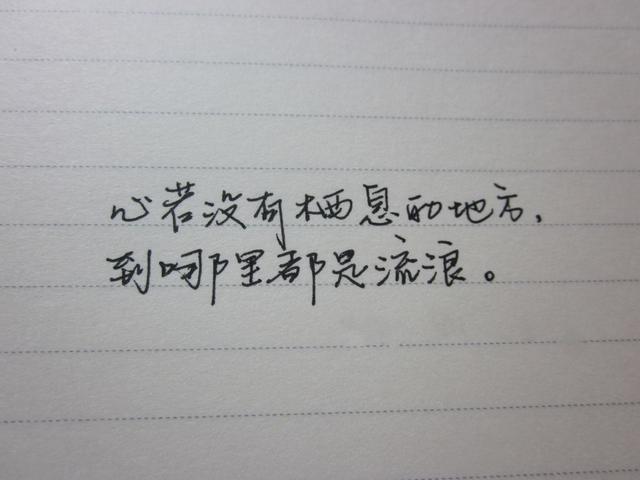 心若没有栖息的地方,
到哪里都是流浪。